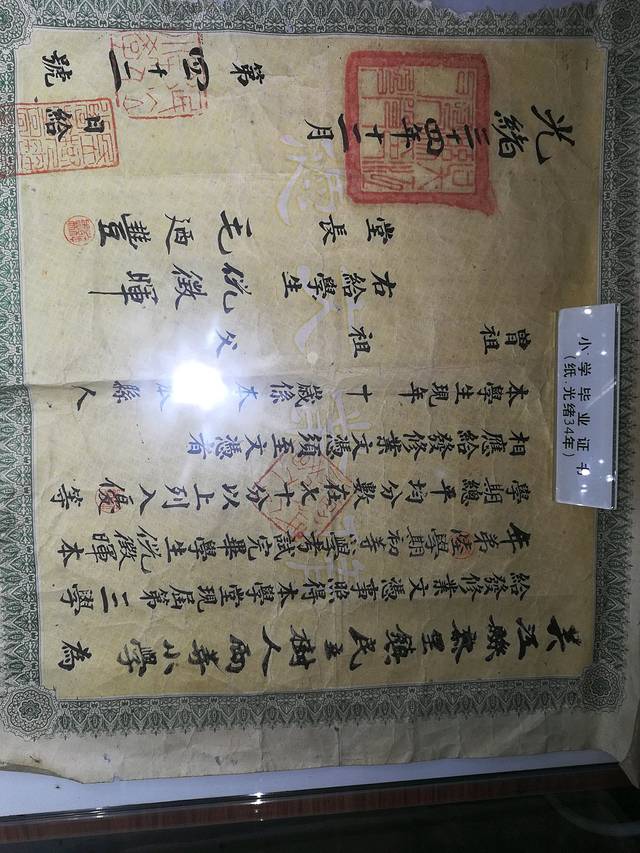 吳江縣黎里鎮民立樹人兩等小學為
給發修業文憑事照得本學堂現屆第三學
年第陸學期初等學考試完畢學生倪徵暉本
學期總平均分數在七十分以上列入優等
相應給發修業文憑須至文憑者
本學生現年十 歲係本縣人
曾祖 祖 父
右給學生倪徵暉
堂長毛迺豐
光緒三十四年十二月 日給
第四十二號
小学毕业证书
（纸.光绪34年）